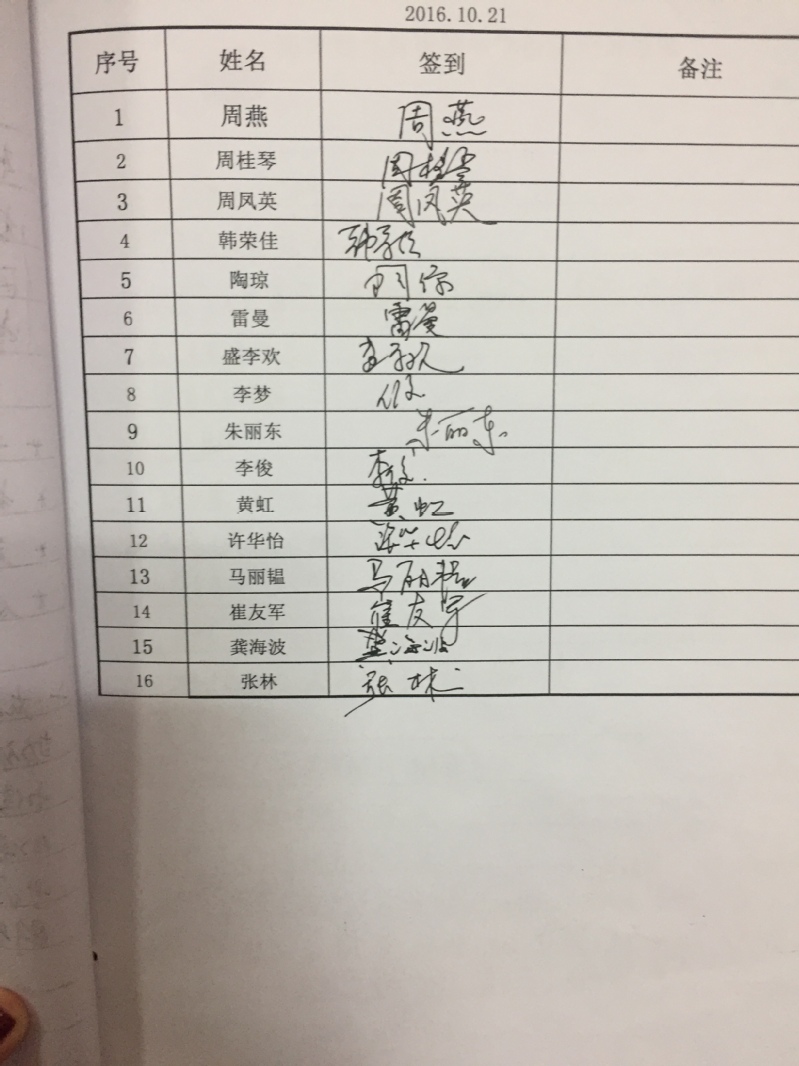 2016.10.21
序号 姓名 签到 备注
1 周燕 周燕
2 周桂琴 周桂琴
3 周凤英 周凤英
4 韩荣佳
5 陶琼
6 雷曼 雷曼
7 盛李欢
8 李梦
9 朱丽东 朱丽东
10 李俊 李俊
11 黄虹 黄虹
12 许华怡 许华怡
13 马丽韫 马丽韫
14 崔友军 崔友军
15 龚海波 龚海波
16 张林 张林